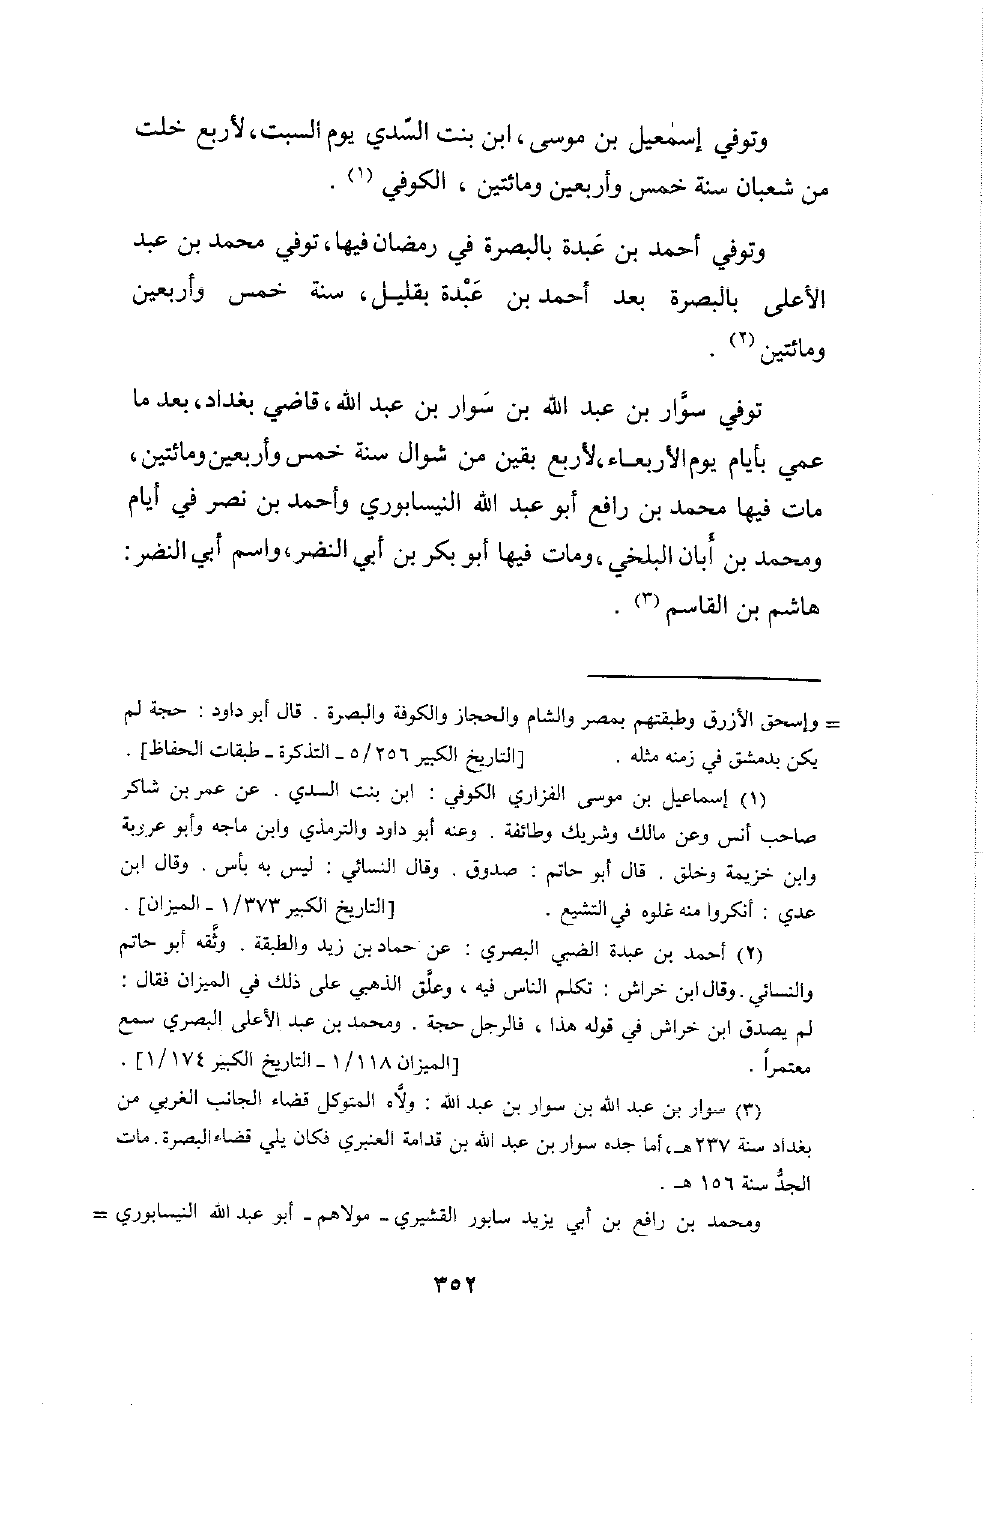 وتوفي إسمٰعيل بن موسى، ابن بنت السّدي يوم السبت، لأربع خلت
من شعبان سنة خمس وأربعين ومائتين ، الكوفي (١) .
وتوفي أحمد بن عَبدة بالبصرة في رمضان فيها، توفي محمد بن عبد
الأعلى بالبصرة بعد أحمد بن عَبْدة بقليل، سنة خمس وأربعين
ومائتين (٢) .
توفي سوَّار بن عبد الله بن سَوار بن عبد الله، قاضي بغداد، بعد ما
عمي بأيام يوم الأربعاء، لأربع بقين من شوال سنة خمس وأربعين ومائتين،
مات فيها محمد بن رافع أبو عبد الله النيسابوري وأحمد بن نصر في أيام
ومحمد بن أَبان البلخي، ومات فيها أبو بكر بن أبي النضر، واسم أبي النضر:
هاشم بن القاسم (٣) .
= وإسحق الأزرق وطبقتهم بمصر والشام والحجاز والكوفة والبصرة . قال أبو داود : حجة لم
يكن بدمشق في زمنه مثله . [التاريخ الكبير ٥/٢٥٦ ـ التذكرة ـ طبقات الحفاظ] .
(١) إسماعيل بن موسى الفزاري الكوفي : ابن بنت السدي . عن عمر بن شاكر
صاحب أنس وعن مالك وشريك وطائفة . وعنه أبو داود والترمذي وابن ماجه وأبو عروبة
وابن خزيمة وخلق . قال أبو حاتم : صدوق . وقال النسائي : ليس به بأس . وقال ابن
عدي : أنكروا منه غلوه في التشيع . [التاريخ الكبير ١/٣٧٣ ـ الميزان] .
(٢) أحمد بن عبدة الضبي البصري : عن حماد بن زيد والطبقة . وثَّقه أبو حاتم
والنسائي . وقال ابن خراش : تكلم الناس فيه ، وعلَّق الذهبي على ذلك في الميزان فقال :
لم يصدق ابن خراش في قوله هذا ، فالرجل حجة . ومحمد بن عبد الأعلى البصري سمع
معتمراً . [الميزان ١/١١٨ ـ التاريخ الكبير ١/١٧٤] .
(٣) سوار بن عبد الله بن سوار بن عبد الله : ولَّاه المتوكل قضاء الجانب الغربي من
بغداد سنة ٢٣٧ هـ، أما جده سوار بن عبد الله بن قدامة العنبري فكان يلي قضاء البصرة . مات
الجدُّ سنة ١٥٦ هـ .
ومحمد بن رافع بن أبي يزيد سابور القشيري ـ مولاهم ـ أبو عبد الله النيسابوري =
٣٥٢